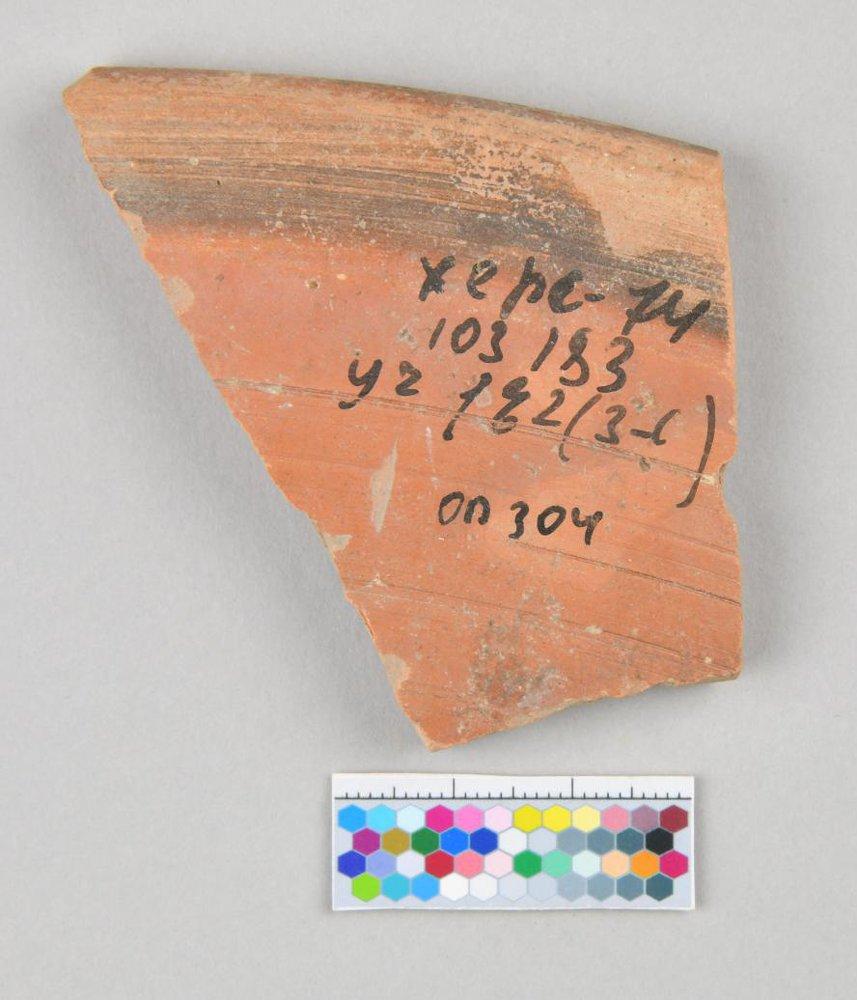 херс-74
103 183
уг 1 (3-
оп 304